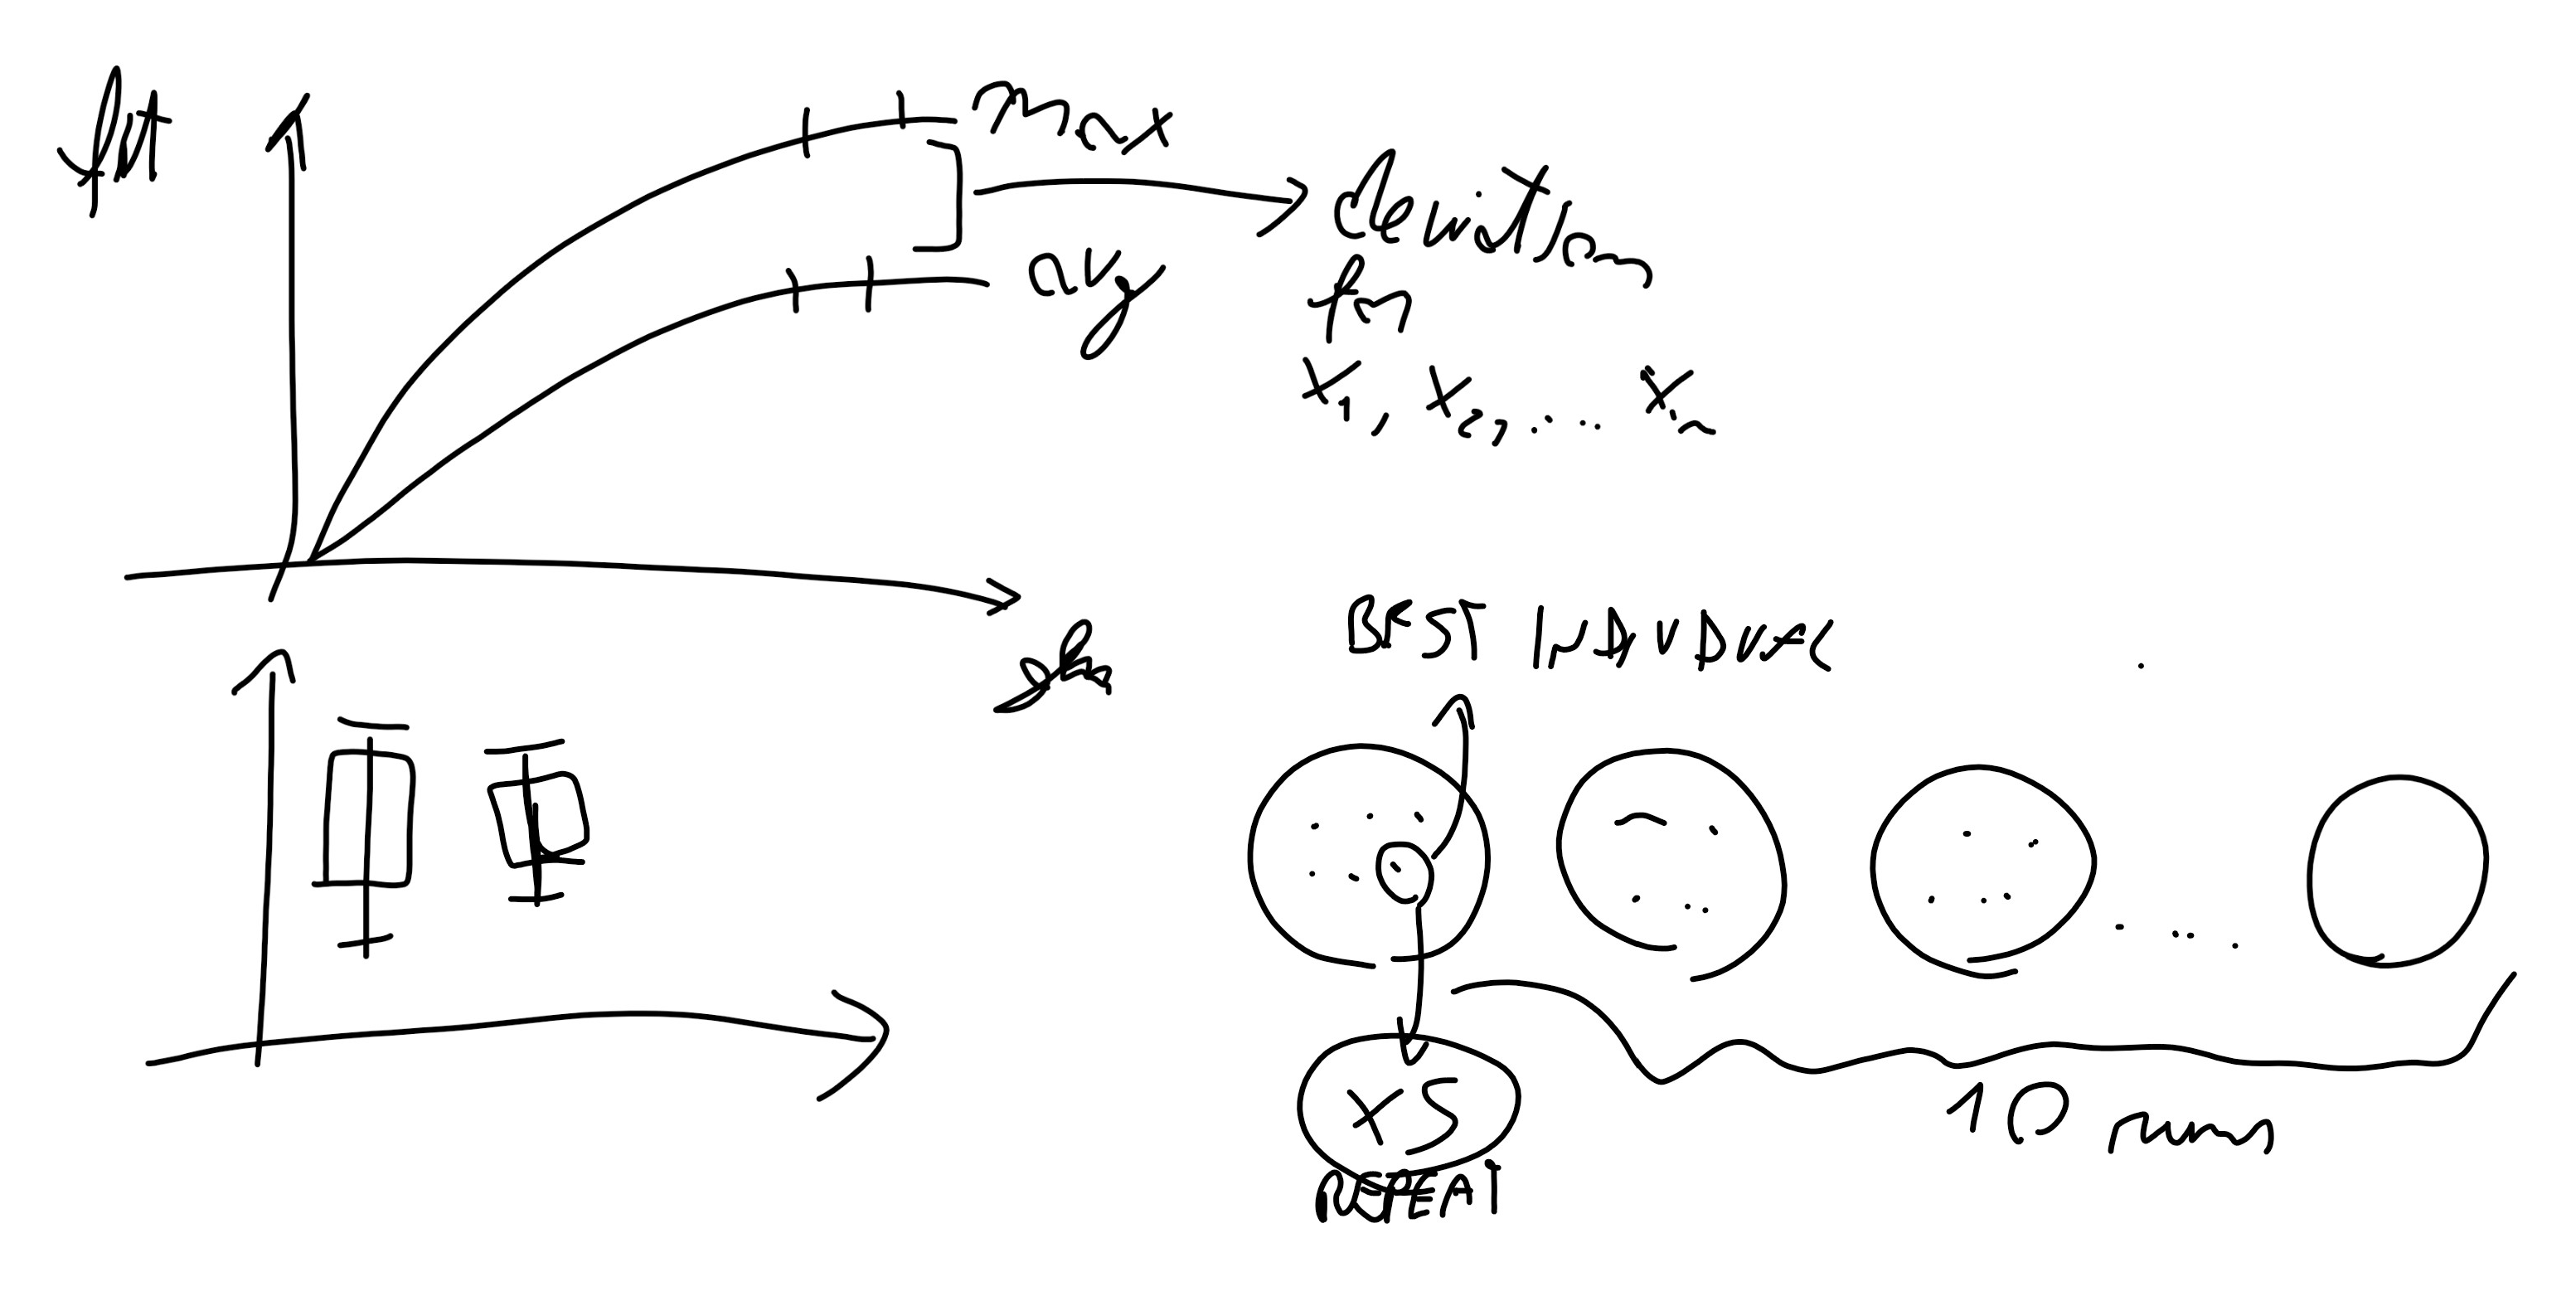 fit
max
avg
deviation
for
x1, x2, .... xn
gen
BEST INDIVIDUAL
x5
REPEAT
10 runs